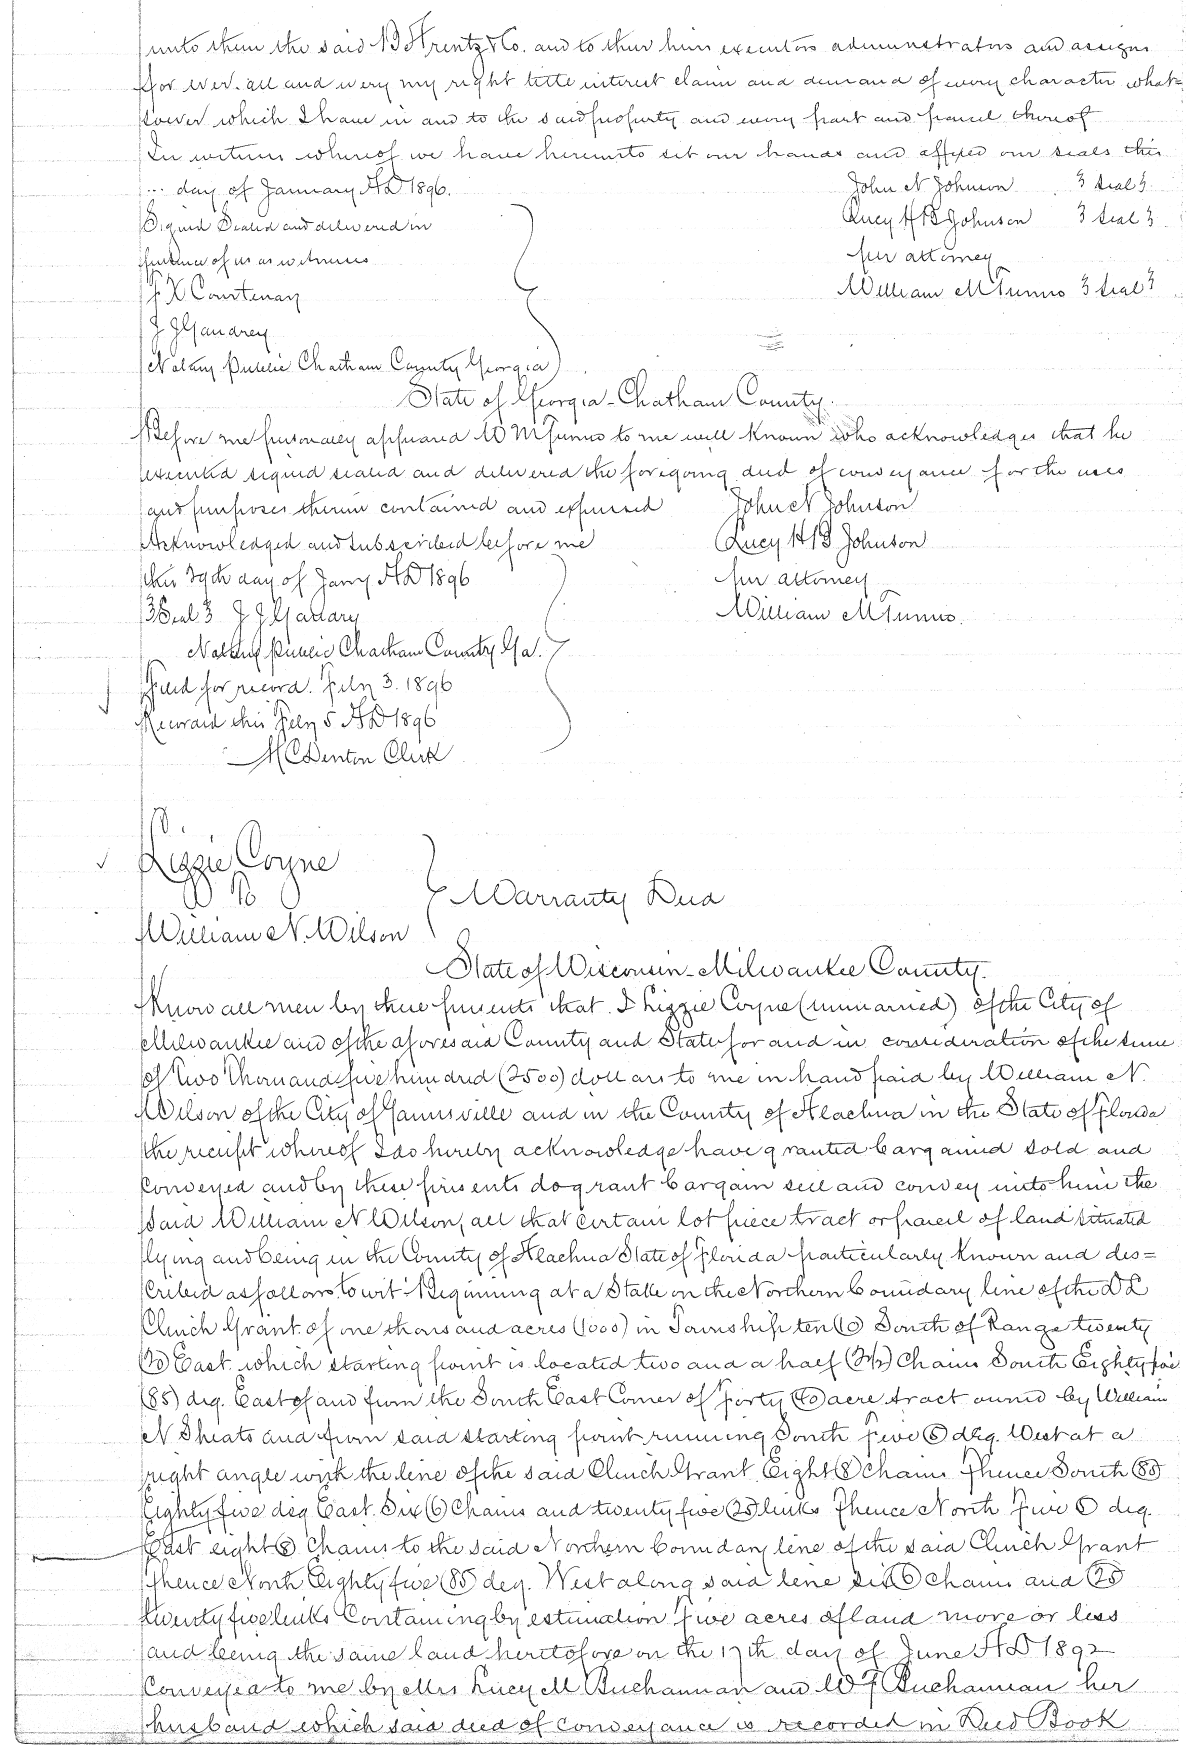 unto them the said B H Trentz & Co. and to their heirs executors administrators and assigns
for ever. all and every my right title interest claim and demand of every character what=
soever which I have in and to the said property and every part and parcel thereof
In witness whereof we have hereunto set our hands and affixed our seals this
... day of January AD 1896. John N Johnson 3 Seal 3
Signed Sealed and delivered in Lucy H B Johnson 3 Seal 3
presence of us as witnesses per attorney
F X Courtenay William M Tunno 3 Seal 3
J J Gaudrey
Notary Public Chatham County Georgia
State of Georgia - Chatham County.
Before me personally appeared W M Tunno to me well known who acknowledges that he
executed signed sealed and delivered the foregoing deed of conveyance for the uses
and purposes therein contained and expressed John N Johnson
Acknowledged and subscribed before me Lucy H B Johnson
this 29th day of Jany AD 1896 per attorney
3 Seal 3 J J Gaudry William M Tunno.
Notary Public Chatham County Ga.
Filed for record. Feby 3. 1896
Recorded this Feby 5 AD 1896
H C Denton Clerk
Lizzie Coyne
To Warranty Deed
William N. Wilson
State of Wisconsin - Milwaukee County.
Know all men by these presents that I Lizzie Coyne (unmarried) of the City of
Milwaukee and of the aforesaid County and State for and in consideration of the sum
of Two Thousand five hundred (2500) dollars to me in hand paid by William N.
Wilson of the City of Gainesville and in the County of Alachua in the State of Florida
the receipt whereof I do hereby acknowledge have granted bargained sold and
conveyed and by these presents do grant bargain sell and convey unto him the
said William N Wilson, all that certain lot piece tract or parcel of land situated
lying and being in the County of Alachua State of Florida particularly known and des=
cribed as follows. to wit: Beginning at a Stake on the Northern boundary line of the D L
Clinch Grant. of one thousand acres (1000) in Township ten (10) South of Range twenty
(20) East. which starting point is located two and a half (2½) Chains South Eighty five
(85) deg. East of and from the South East Corner of forty (40) acre tract owned by William
N Sheats and from said starting point running South Five (5) deg. West at a
right angle with the line of the said Clinch Grant Eight (8) chains Thence South (85)
Eighty five deg East. Six (6) Chains and twenty five (25) links Thence North Five (5) deg.
East eight (8) chains to the said Northern boundary line of the said Clinch Grant
Thence North Eighty five (85) deg. West along said line six (6) chains and (25)
twenty five links Containing by estimation Five acres of land more or less
and being the same land heretofore on the 17th day of June AD 1892
Conveyed to me by Mrs Lucy M Buchannan and W F Buchannan her
husband which said deed of conveyance is recorded in Deed Book